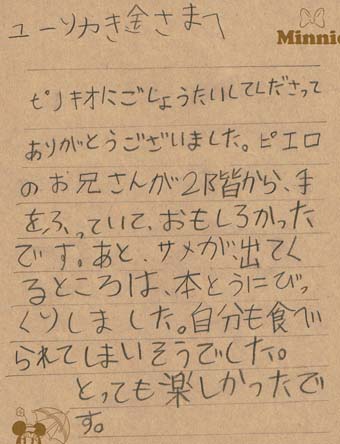 ユーソカき金さまへ
Minnie
ピノキオにごしょうたいしてくださって
ありがとうございました。ピエロ
のお兄さんが2階から、手
をふっていて、おもしろかった
です。あと、サメが、出てく
るところは、本とうにびっ
くりしました。自分も食べ
られてしまいそうでした。
とっても楽しかったで
す。